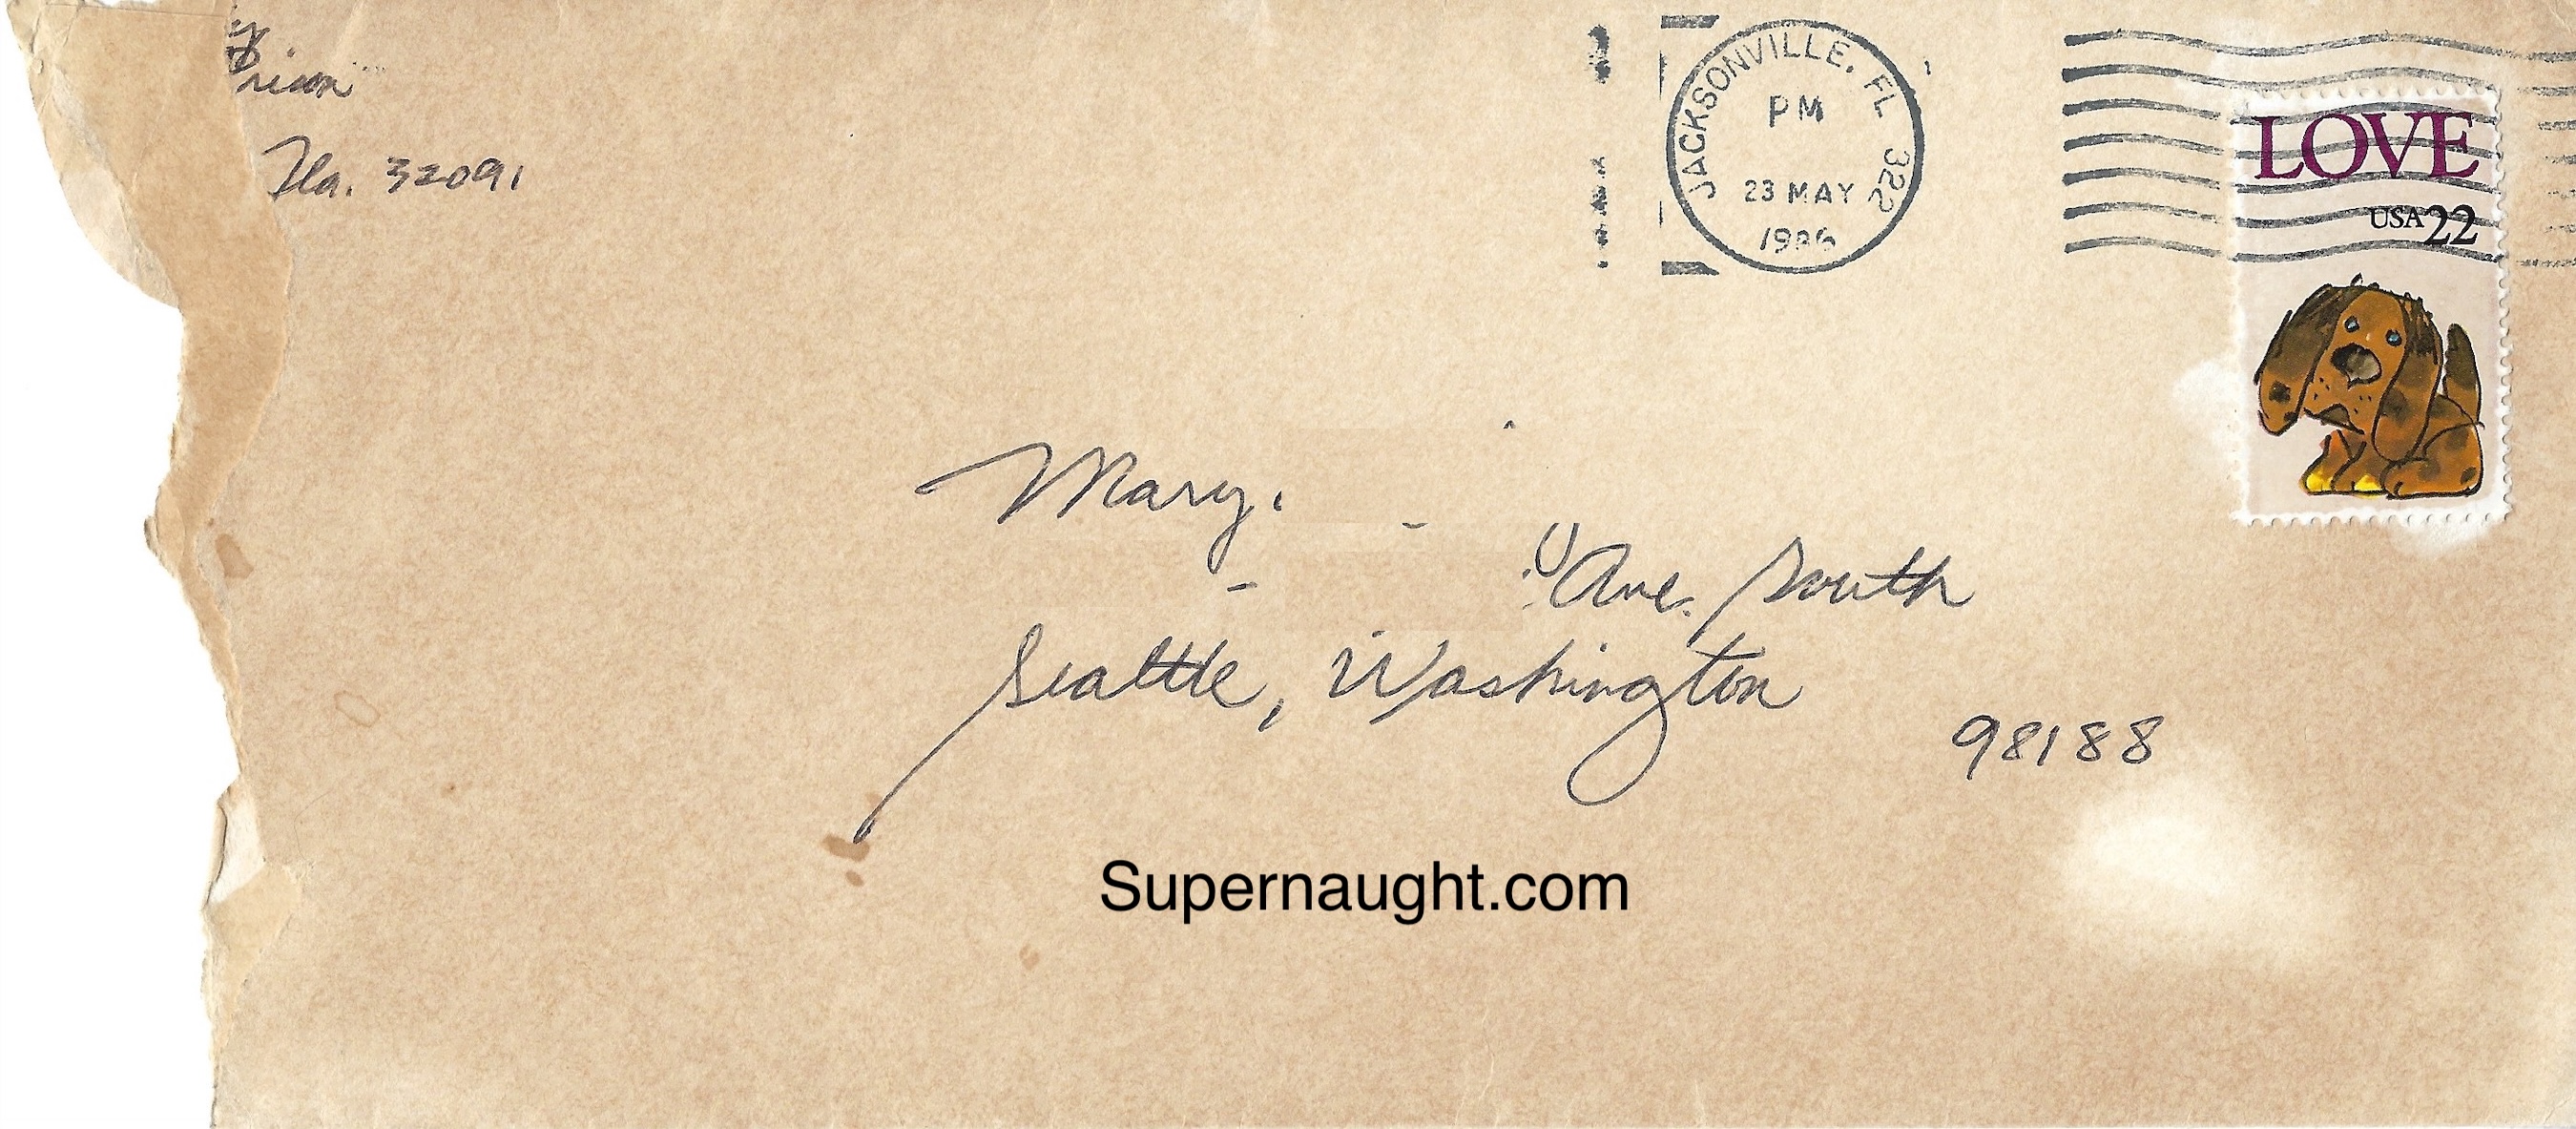 Prison
Fla. 32091
JACKSONVILLE, FL 322
PM
23 MAY
1986
LOVE
USA22
Mary
Ave. South
Seattle, Washington
98188
Supernaught.com